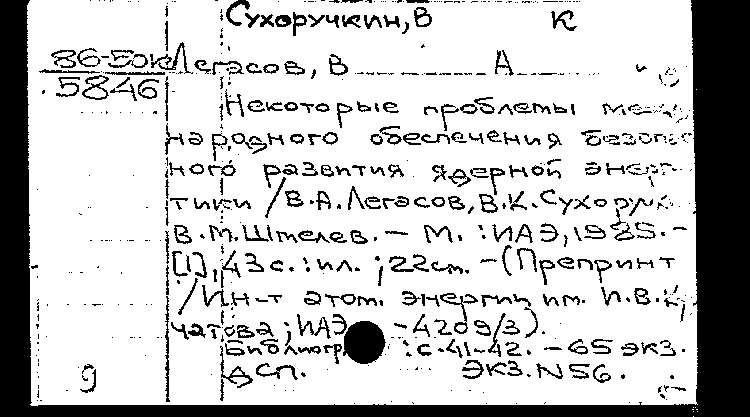 Сухоручкин, В К
86-50к Легасов, В А
5846
Некоторые проблемы
народного обеспечения
ного развития ядерной
тики / В.А.Легасов, В.К.
В.М.Шмелев. — М. : ИАЭ, 1985. –
[1], 43 с. : ил. ; 22 см. – (Препринт
/ Ин-т атом. энергии им. И.В.
чатова ; ИАЭ –4209/3).
: с. 41–42. – 65 экз.
9 ДСП. ЭКЗ. N56.